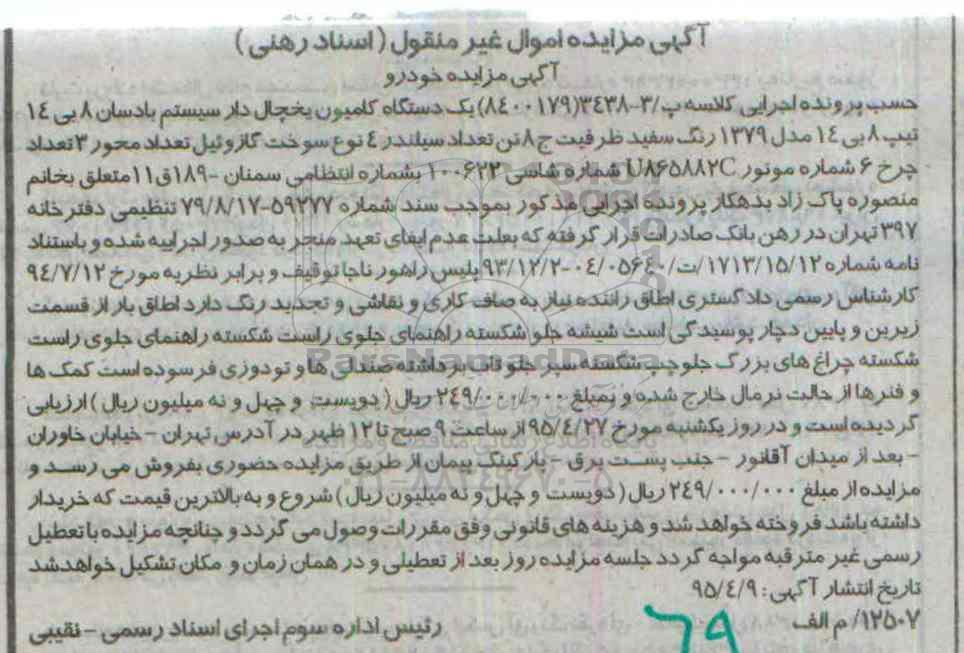 آگهی مزایده اموال غیر منقول (اسناد رهنی)
آگهی مزایده خودرو
حسب پرونده اجرایی کلاسه پ/۳-۳۴۳۸(۸۴۰۰۱۷۹) یک دستگاه کامیون یخچال دار سیستم بادسان ۸ بی ۱۴
تیپ ۸ بی ۱۴ مدل ۱۳۷۹ رنگ سفید ظرفیت ج ۸ تن تعداد سیلندر ۴ نوع سوخت گازوئیل تعداد محور ۳ تعداد
چرخ ۶ شماره موتور U۸۶۵۸۸۲C شماره شاسی ۱۰۰۶۲۳ بشماره انتظامی سمنان -۱۸۹ق۱۱ متعلق بخانم
منصوره پاک زاد بدهکار پرونده اجرایی مذکور بموجب سند شماره ۵۹۲۷۷-۷۹/۸/۱۷ تنظیمی دفترخانه
۳۹۷ تهران در رهن بانک صادرات قرار گرفته که بعلت عدم ایفای تعهد منجر به صدور اجراییه شده و باستناد
نامه شماره ۱۷۱۳/۱۵/۱۲/ت/۰۴/۰۵۶۴۰-۹۳/۱۲/۲ پلیس راهور ناجا توقیف و برابر نظریه مورخ ۹۴/۷/۱۲
کارشناس رسمی دادگستری اطاق راننده نیاز به صاف کاری و نقاشی و تجدید رنگ دارد اطاق بار از قسمت
زیرین و پایین دچار پوسیدگی است شیشه جلو شکسته راهنمای جلوی راست شکسته راهنمای جلوی راست
شکسته چراغ های بزرگ جلو چپ شکسته سپر جلو تاب برداشته صندلی ها و تودوزی فرسوده است کمک ها
و فنرها از حالت نرمال خارج شده و بمبلغ ۲۴۹/۰۰۰/۰۰۰ ریال (دویست و چهل و نه میلیون ریال) ارزیابی
گردیده است و در روز یکشنبه مورخ ۹۵/۴/۲۷ از ساعت ۹ صبح تا ۱۲ ظهر در آدرس تهران - خیابان خاوران
- بعد از میدان آقانور - جنب پست برق - پارکینگ پیمان از طریق مزایده حضوری بفروش می رسد و
مزایده از مبلغ ۲۴۹/۰۰۰/۰۰۰ ریال (دویست و چهل و نه میلیون ریال) شروع و به بالاترین قیمت که خریدار
داشته باشد فروخته خواهد شد و هزینه های قانونی وفق مقررات وصول می گردد و چنانچه مزایده با تعطیل
رسمی غیر مترقبه مواجه گردد جلسه مزایده روز بعد از تعطیلی و در همان زمان و مکان تشکیل خواهد شد
تاریخ انتشار آگهی: ۹۵/۴/۹
۱۲۵۰۷/ م الف
رئیس اداره سوم اجرای اسناد رسمی - نقیبی
۶۹
ParsNamadData
۰۲۱-۸۸۳۴۹۶۷۰-۵